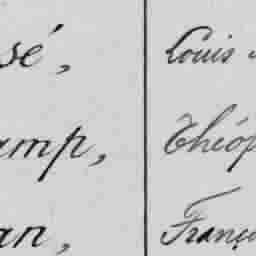 sé, Louis
amp, Théop
an, Franço